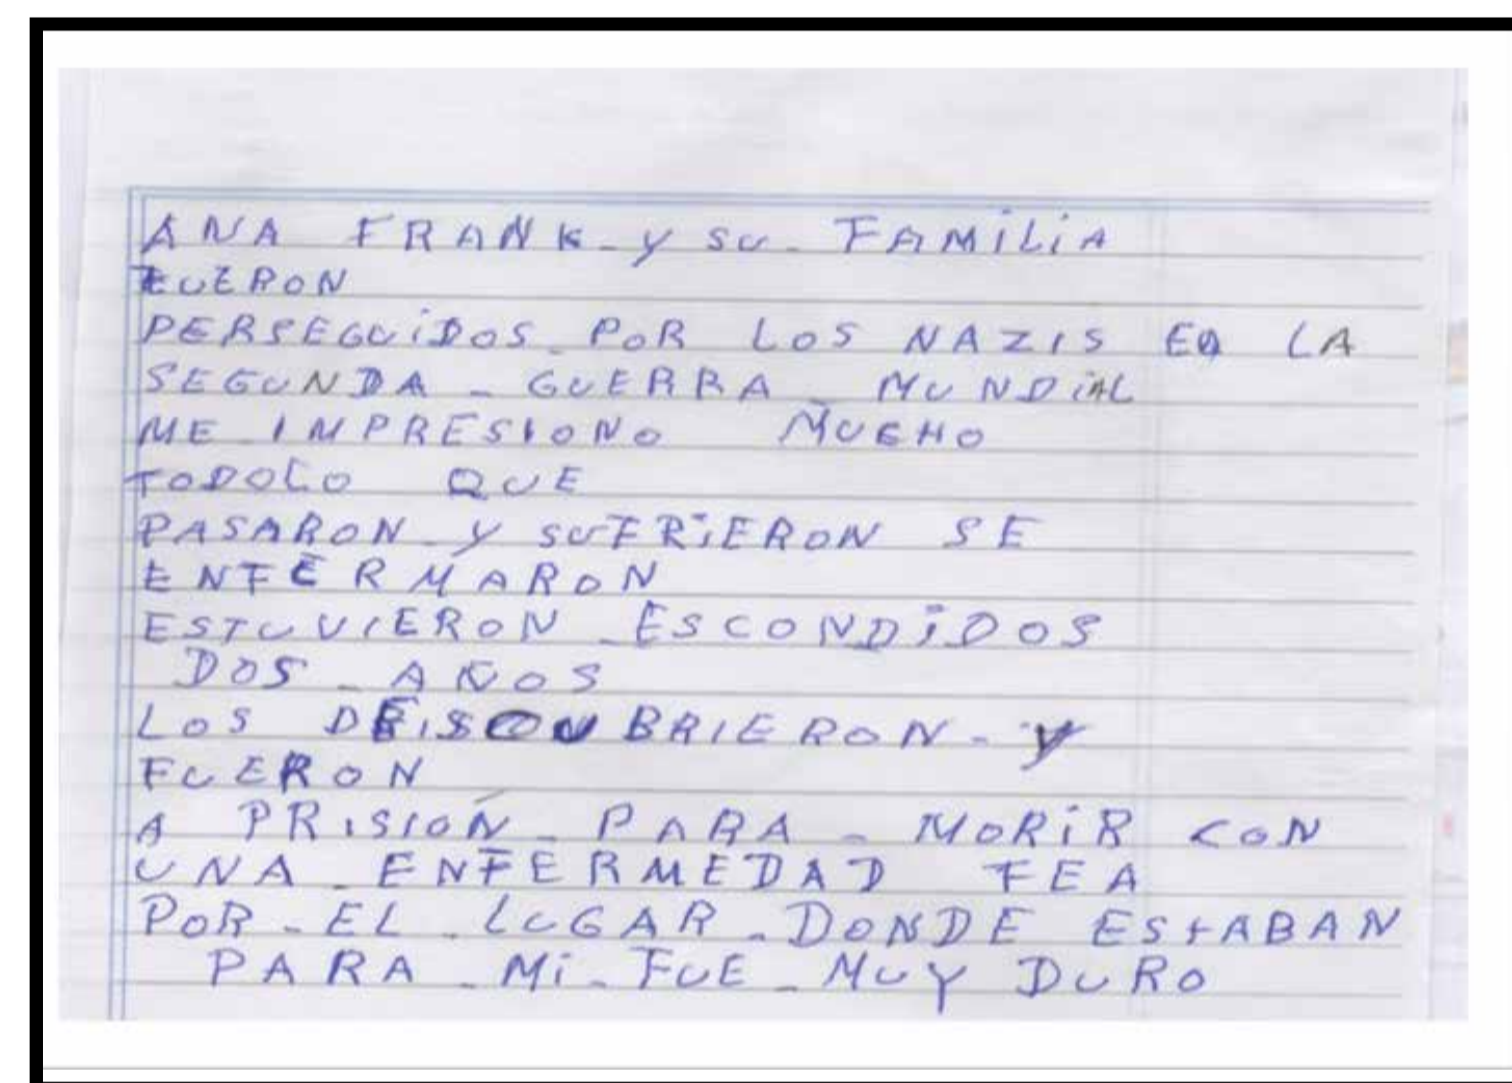 ANA FRANK-y su-FAMiLiA
FUERON
PERSEGUiDOS POR LOS NAZIS EN LA
SEGUNDA - GUERRA MUNDiAL
ME IMPRESIONO MUCHO
TODOLO QUE
PASARON-y SUFRiERON SE
ENFERMARON
ESTUVIERON ESCONDiDOS
DOS-AÑOS
LOS DEISCUBRIERON-y
FUERON
A PRISIÓN-PARA-MORiR CON
UNA ENFERMEDAD FEA
POR-EL-LUGAR-DONDE ESTABAN
PARA-Mi-FUE-MUY DURO